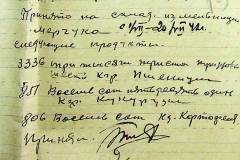 Принято на склад из мельницы
с 1/VIII-20/VIII 42 г.
следующие продукты.
3336 три тысячи триста тридцать
шесть кгр. Пшеницы
851 Восемь сот пятьдесят один
кгр. Кукурузы
806 Восемь сот кг. Картофеля
Принял